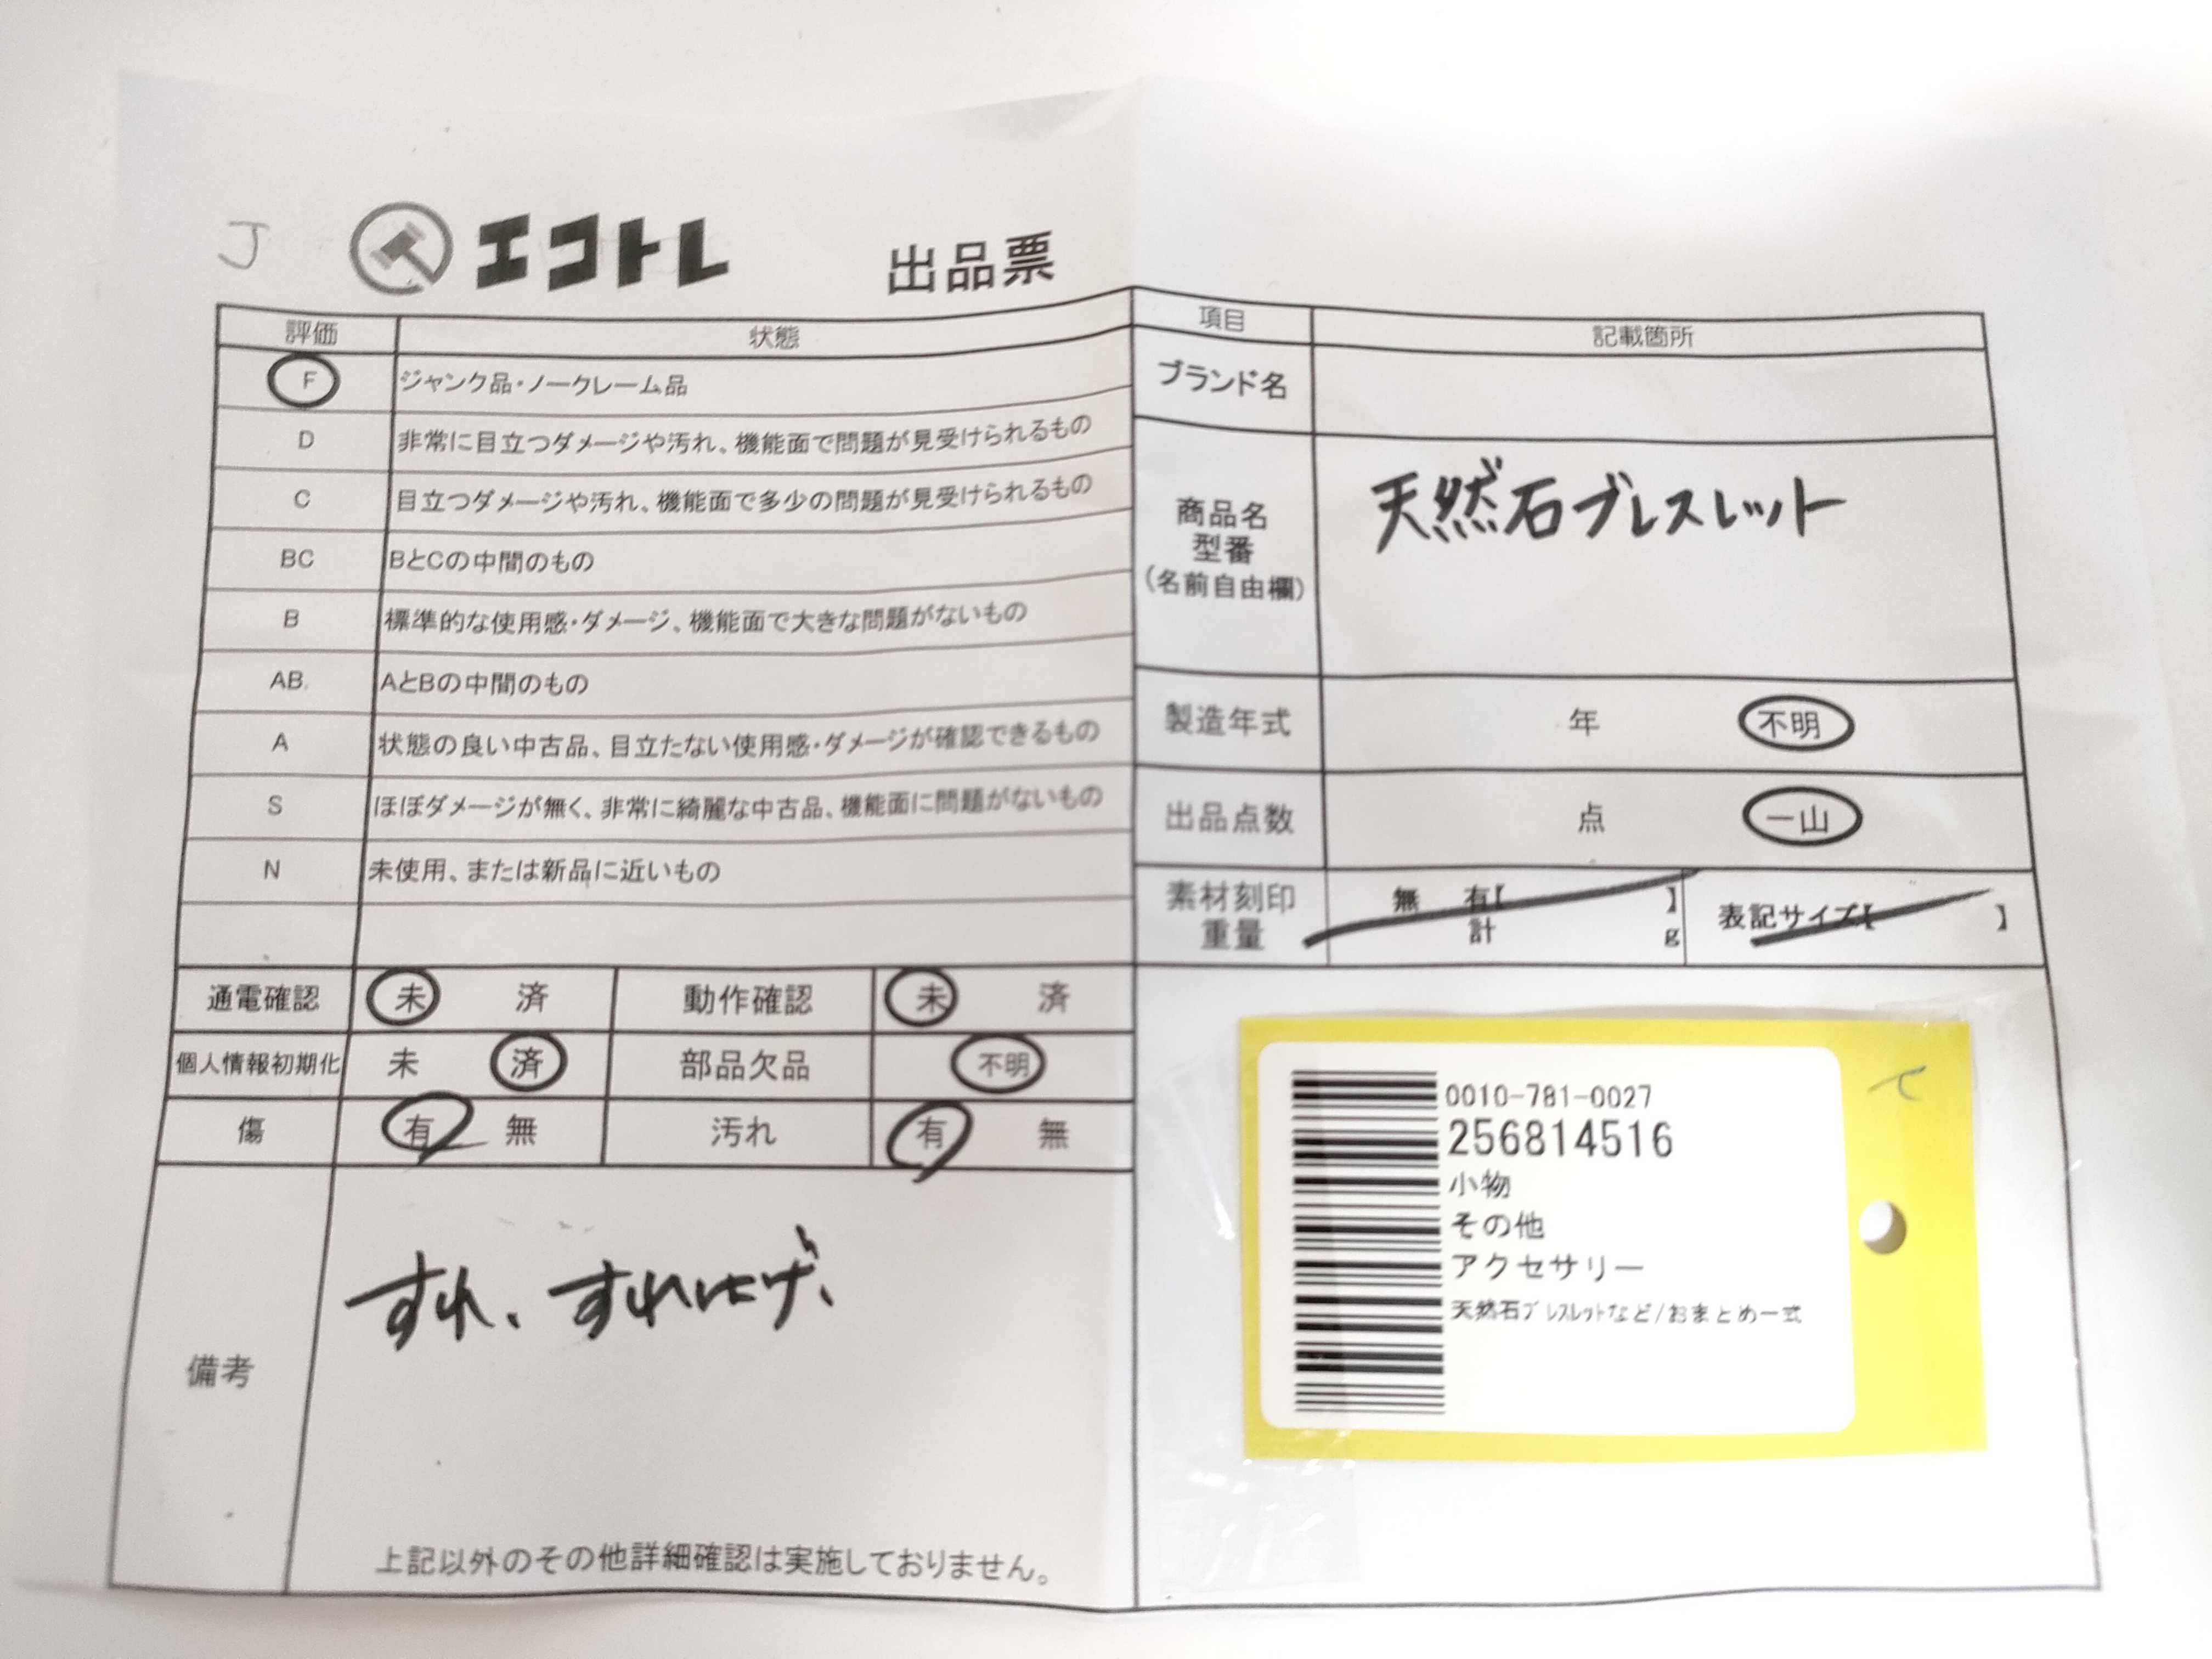 J エコトレ 出品票
評価 状態
F ジャンク品・ノークレーム品
D 非常に目立つダメージや汚れ、機能面で問題が見受けられるもの
C 目立つダメージや汚れ、機能面で多少の問題が見受けられるもの
BC BとCの中間のもの
B 標準的な使用感・ダメージ、機能面で大きな問題がないもの
AB. AとBの中間のもの
A 状態の良い中古品、目立たない使用感・ダメージが確認できるもの
S ほぼダメージが無く、非常に綺麗な中古品、機能面に問題がないもの
N 未使用、または新品に近いもの
通電確認 未 済 動作確認 未 済
個人情報初期化 未 済 部品欠品 不明
傷 有 無 汚れ 有 無
備考
すれ、すれはげ、
上記以外のその他詳細確認は実施しておりません。
項目 記載箇所
ブランド名
商品名
型番
(名前自由欄)
天然石ブレスレット
製造年式 年 不明
出品点数 点 一山
素材刻印
重量
無 有【 】
計 g
表記サイズ【 】
0010-781-0027
256814516
小物
その他
アクセサリー
天然石ブレスレットなど/おまとめ一式